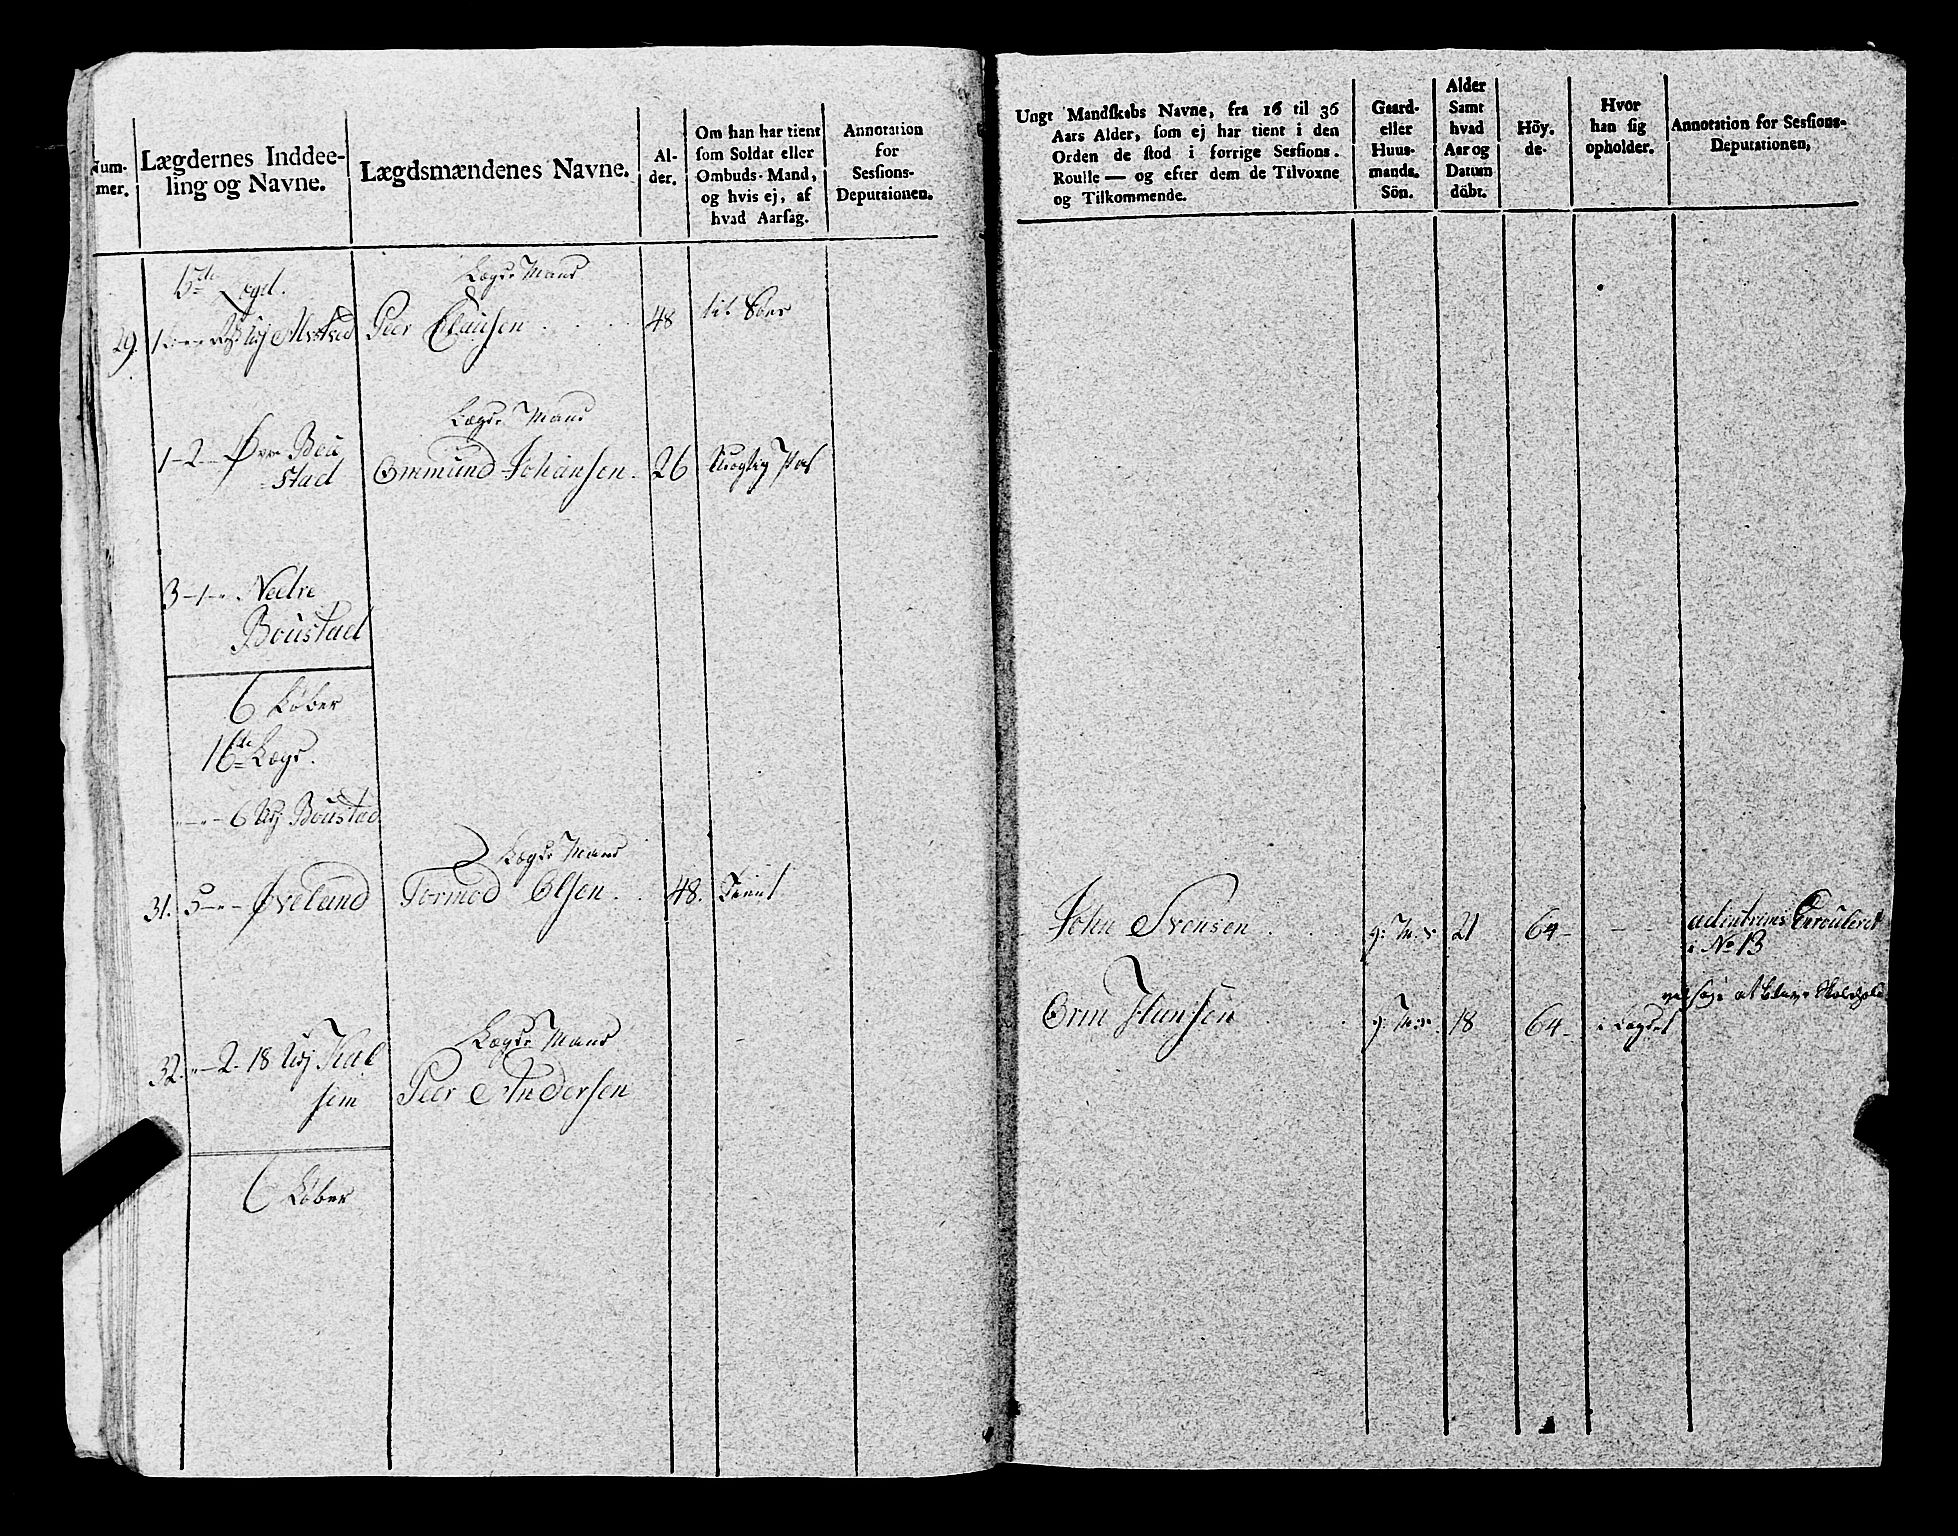 Num-
mer.
Lægdernes Inddee-
ling og Navne.
Lægdsmændenes Navne.
Al-
der.
Om han har tient
som Soldat eller
Ombuds-Mand,
og hvis ej, af
hvad Aarsag.
Annotation
for
Sessions-
Deputationen.
15de Lægd.
Lægds Mand
29. 1 Peer Clausen 48
Lægds Mand
1-2- Øvre Bou
stad Ommund Johansen. 26
3-1-"- Nedre
Boustad
6 Løber
16de Lægd.
6 Boustad
Lægds Mand
31. 5-"- Øveland Tormod Olsen. 48. Tient
Lægds Mand
32. "-2-18
Peer Andersen
6 Løber
Ungt Mandskabs Navne, fra 16 til 36
Aars Alder, som ej har tient i den
Orden de stod i forrige Sessions-
Roulle — og efter dem de Tilvoxne
og Tilkommende.
Gaard-
eller
Huus-
mands.
Sön.
Alder
Samt
hvad
Aar og
Datum
döbt.
Höy-
de.
Hvor
han sig
opholder.
Annotation for Sessions-
Deputationen,
John Svensen g: M: S 21 64- - - Enrouleret
i No 13
Orm Hansen g: M: S. 18 64- i Lægdet